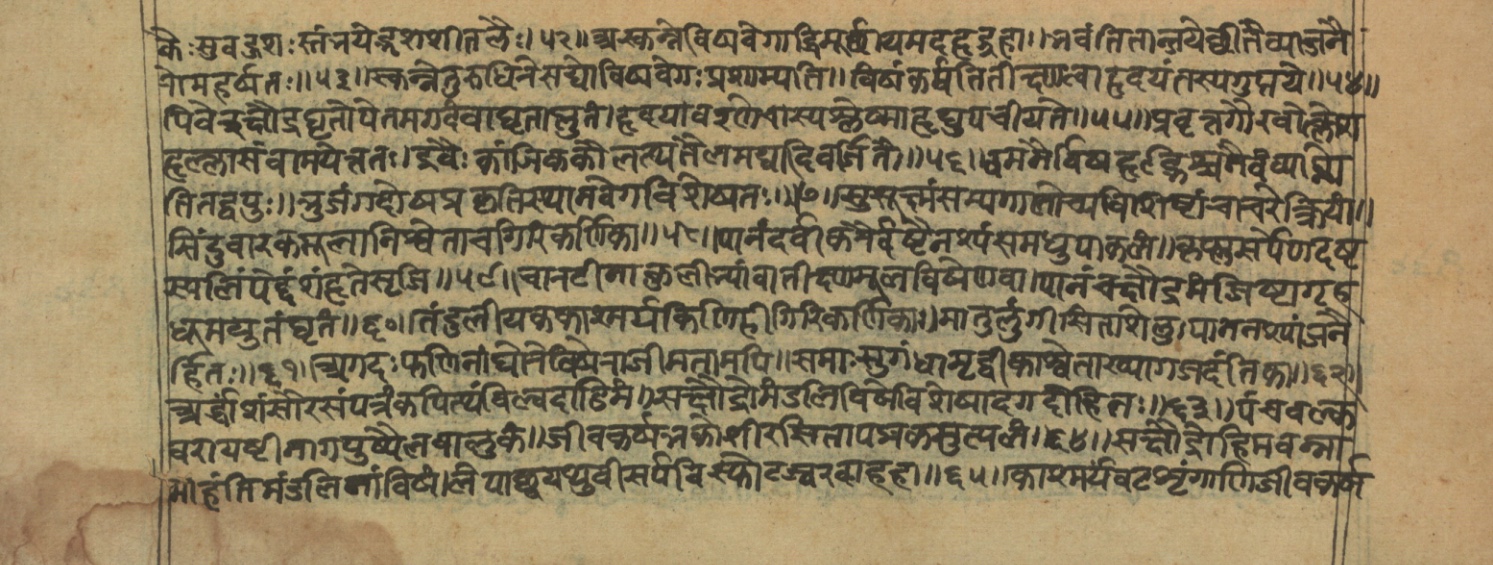 कैः सुवद्रशः स्तंनयेद्भृशशीतलैः॥५२॥अस्कन्नेविषवेगाद्धिमूर्छायमदहृद्द्रहाः॥भवंतितान्जयेछीतैर्व्याजनै
रोमहर्षतः॥५३॥स्कन्नेतुरुधिरेसद्योविषवेगः प्रशाम्पति॥विषंकर्षतितीक्ष्णत्वाहृदयंतस्यगुप्तये॥५४॥
पिवेत्क्षौद्रघृतोपेतमगदंवाघृताप्लुतं।हृदयावरणेचास्यश्लेष्माहृद्युपचीयते॥५५॥प्रवृत्तगौरवोत्क्लेश
हृल्लासंवामयेत्ततः।द्रवैः कांजिककौलत्यंतैलमद्यादिवर्जितैः॥५६।वमनैर्विषहृद्भिश्चनैवंव्याप्नो
तितद्वपुः॥भुजंगदोषप्रकृतिस्थानवेगविशेषतः॥५७॥सुसूक्ष्मंसम्पगालोच्यविशिष्टांचाचरेत्क्रियां॥
सिंदुवारकमूलानिश्वेताचगिरिकर्णिका॥५८॥पानंदर्वीकरैर्दष्टेनश्यंसमधुपाकलं॥कृष्णसर्पेणदष्ट
स्यलिंपेद्दंशंहृतेसृजि॥५९॥चारटीनाकुलीभ्यांवातीक्ष्णमूलविषेणवा।पानंचक्षौद्रमंजिष्टागृह
धूमयुतंघृतं॥६०॥तंडुलीयककाश्मर्यकिणिहीगिरिकर्णिकाः।मातुलुंगीसिताशेलुः पाननश्यांजनै
र्हितः॥६१॥अगदः फणिनांघोरेविषेराजीमतामपि॥समाः सुगंधामृद्वीकाश्वेताख्यागजदंतिका॥६२॥
अर्द्धांशंसौरसंपत्रंकपित्यंविल्वदाडिमं॥सक्षौद्रोमंडलिविषेविशेषादगदोहितः॥६३॥पंचवल्क
वरायष्टीनागपुष्पैलवालुकं॥जीवकर्षभकोशीरंसितापद्मकमुत्पलं॥६४॥सक्षौद्रोहिमवन्ना
मोहंतिमंडलिनांविषं।लेपाच्छ्वयथुवीसर्पविस्फोटज्वरदाहहा॥६५॥काश्मर्यंवटशृंगाणिजीवकर्ष